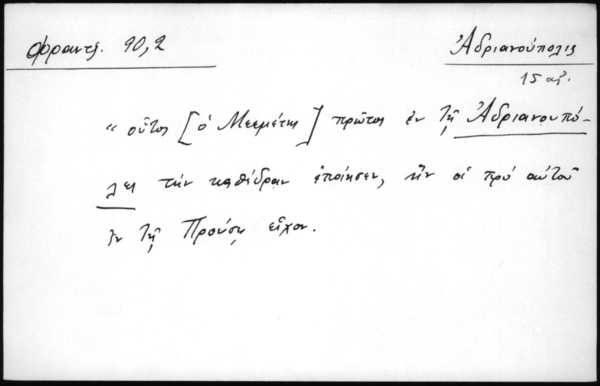 Φραντζ. 90,2
Ἀδριανούπολις
15 αἰ.
" οὗτος [ὁ Μεεμέτης] πρῶτος ἐν τῇ Ἀδριανουπό-
λει τὴν καθέδραν ἐποίησεν, ἣν οἱ πρό αὐτοῦ
ἐν τῇ Προύσῃ εἶχον.